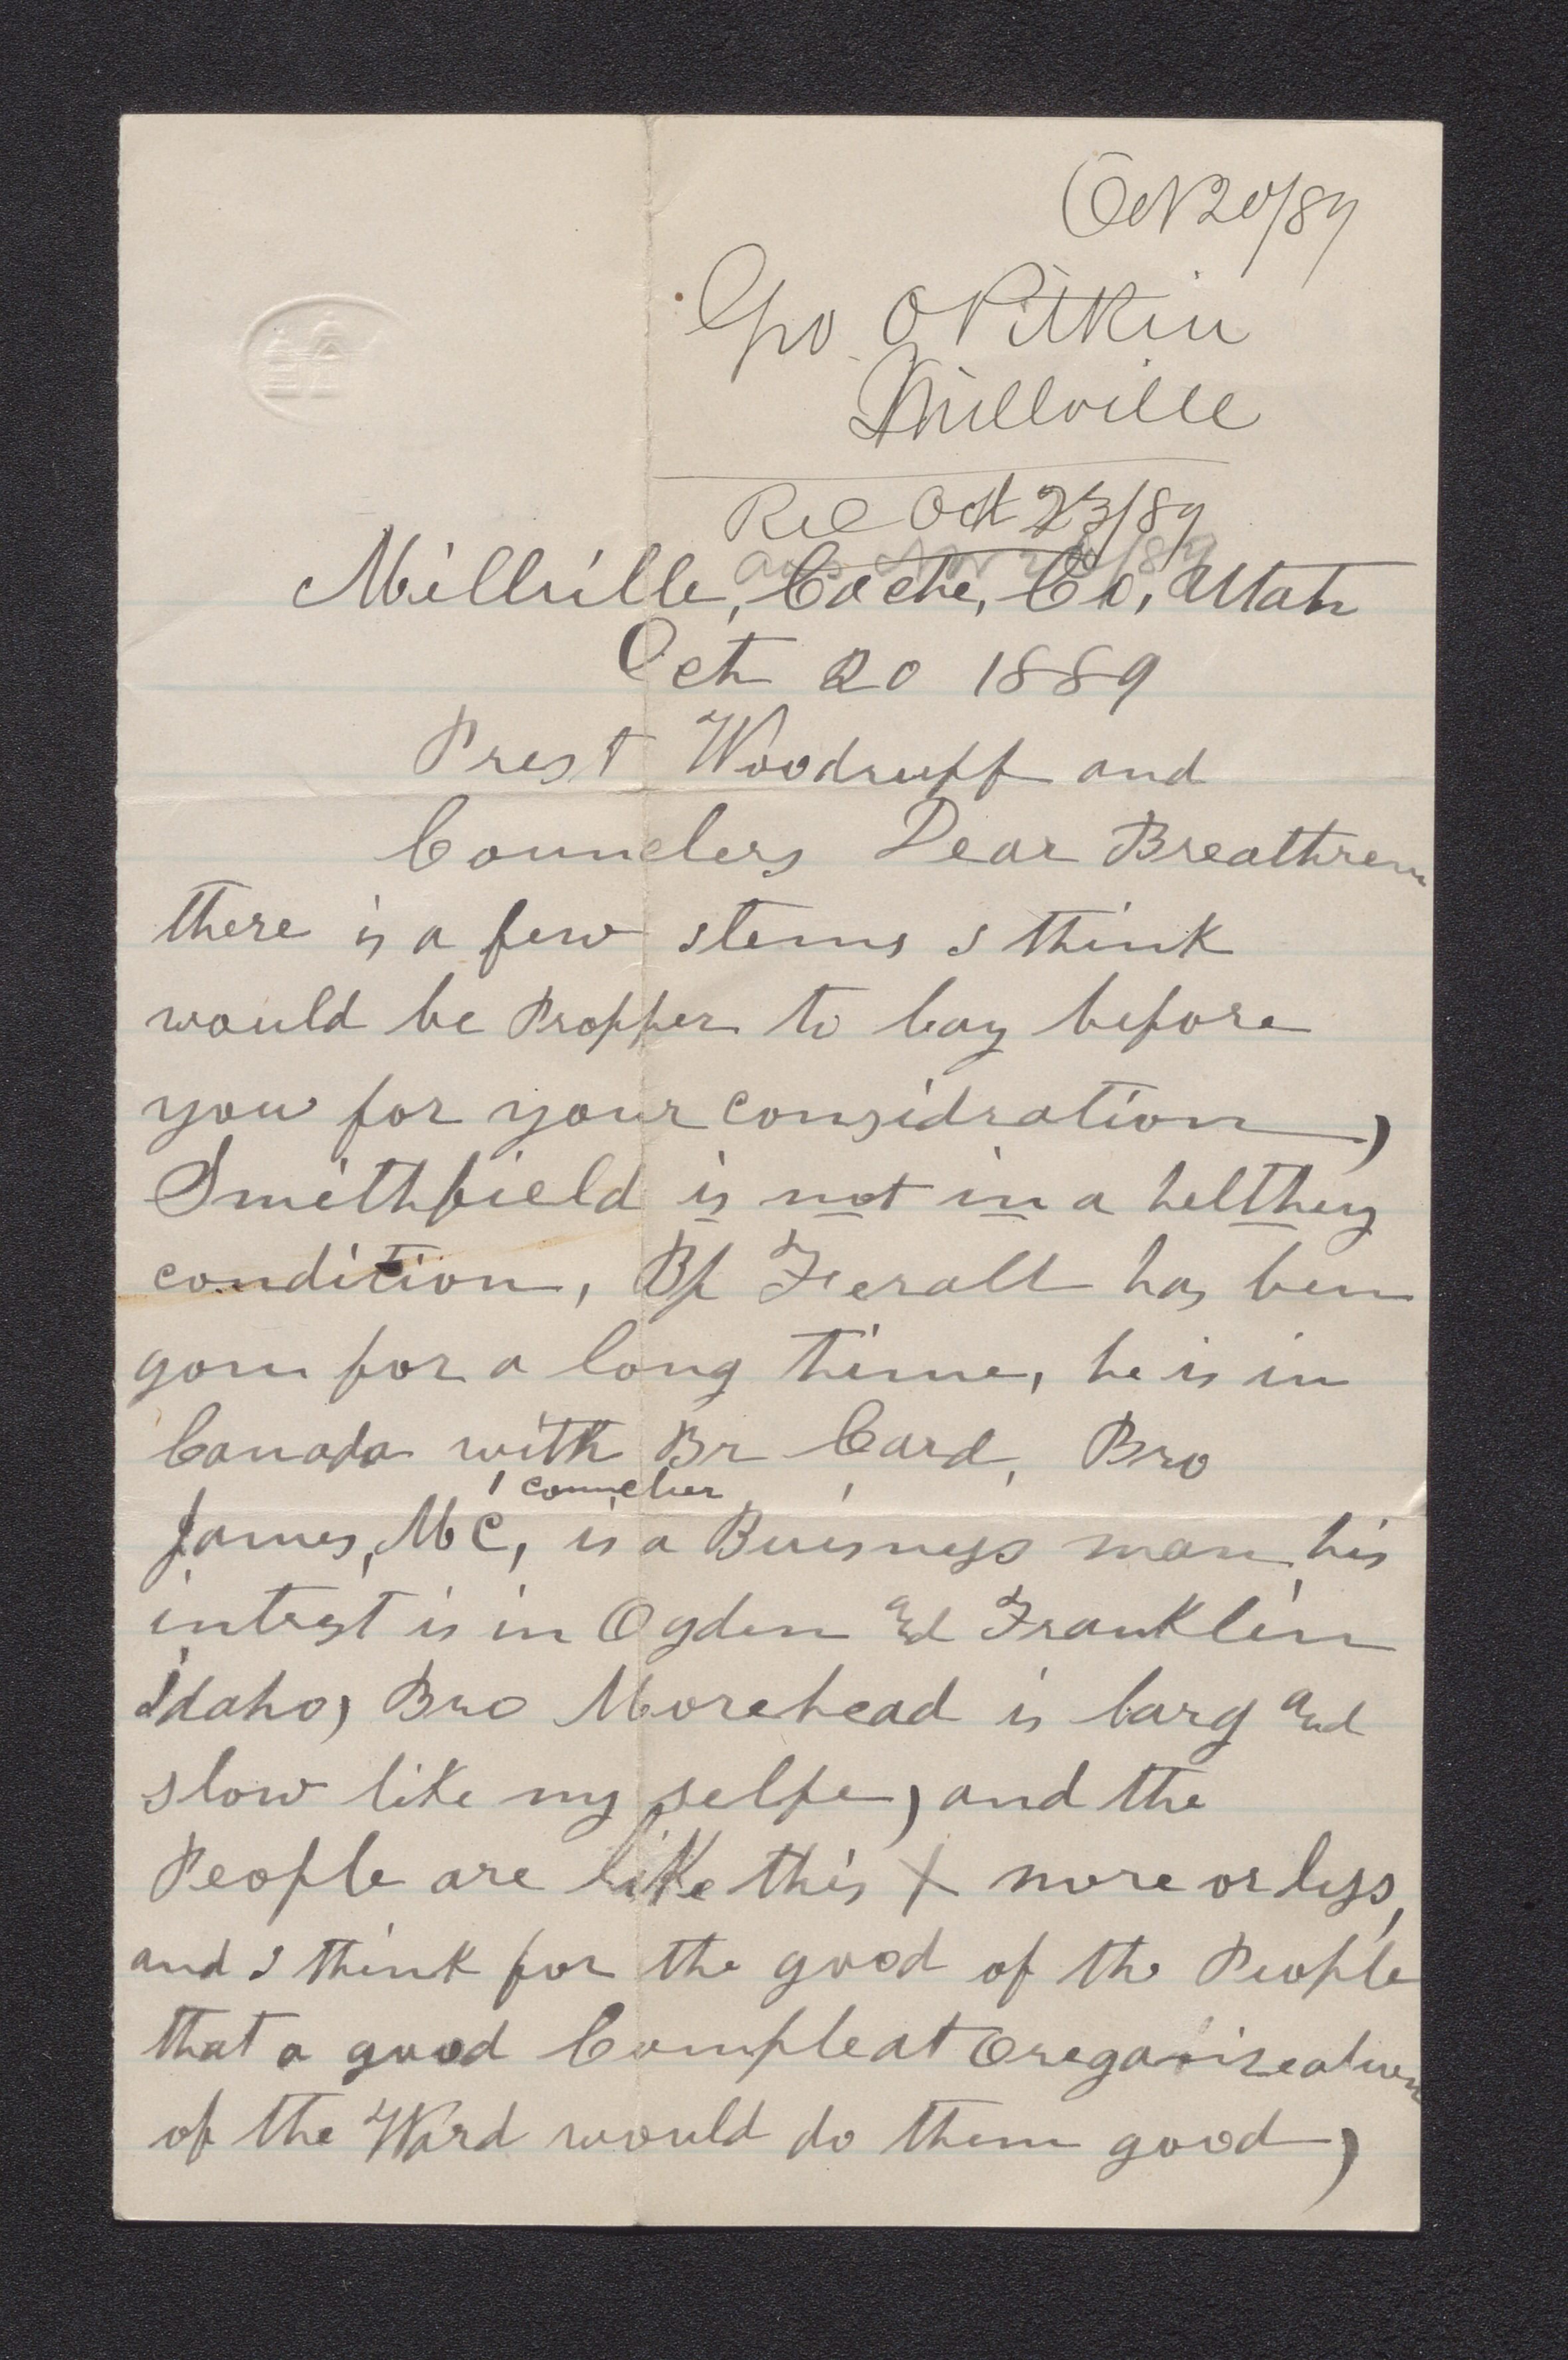 Oct 20/89
Geo O Pitkin
Millville
Rec Oct 23/89
ans Nov /89
Millville, Cache, Co, Utah
Oct 20 1889
Prest Woodruff and
Councelers Dear Breathren
there is a few items I think
would be Propper to lay before
you for your considration,
Smithfield is not in a helthey
condition, Bp Feralt has ben
gorn for a long time, he is in
Canada with Br Card, Bro
1 counceler
James, Mc, is a Buisness man his
intrest is in Ogden and Franklin
Idaho, Bro Morehead is larg and
slow like my selfe, and the
People are like this X more or less,
and I think for the good of the People
that a good Compleat Oreganiseation
of the Ward would do them good,